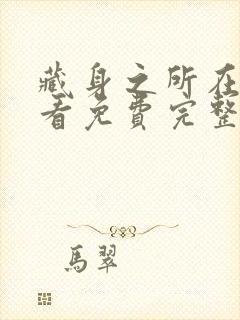 藏身之所在
看免費完整
馬翠